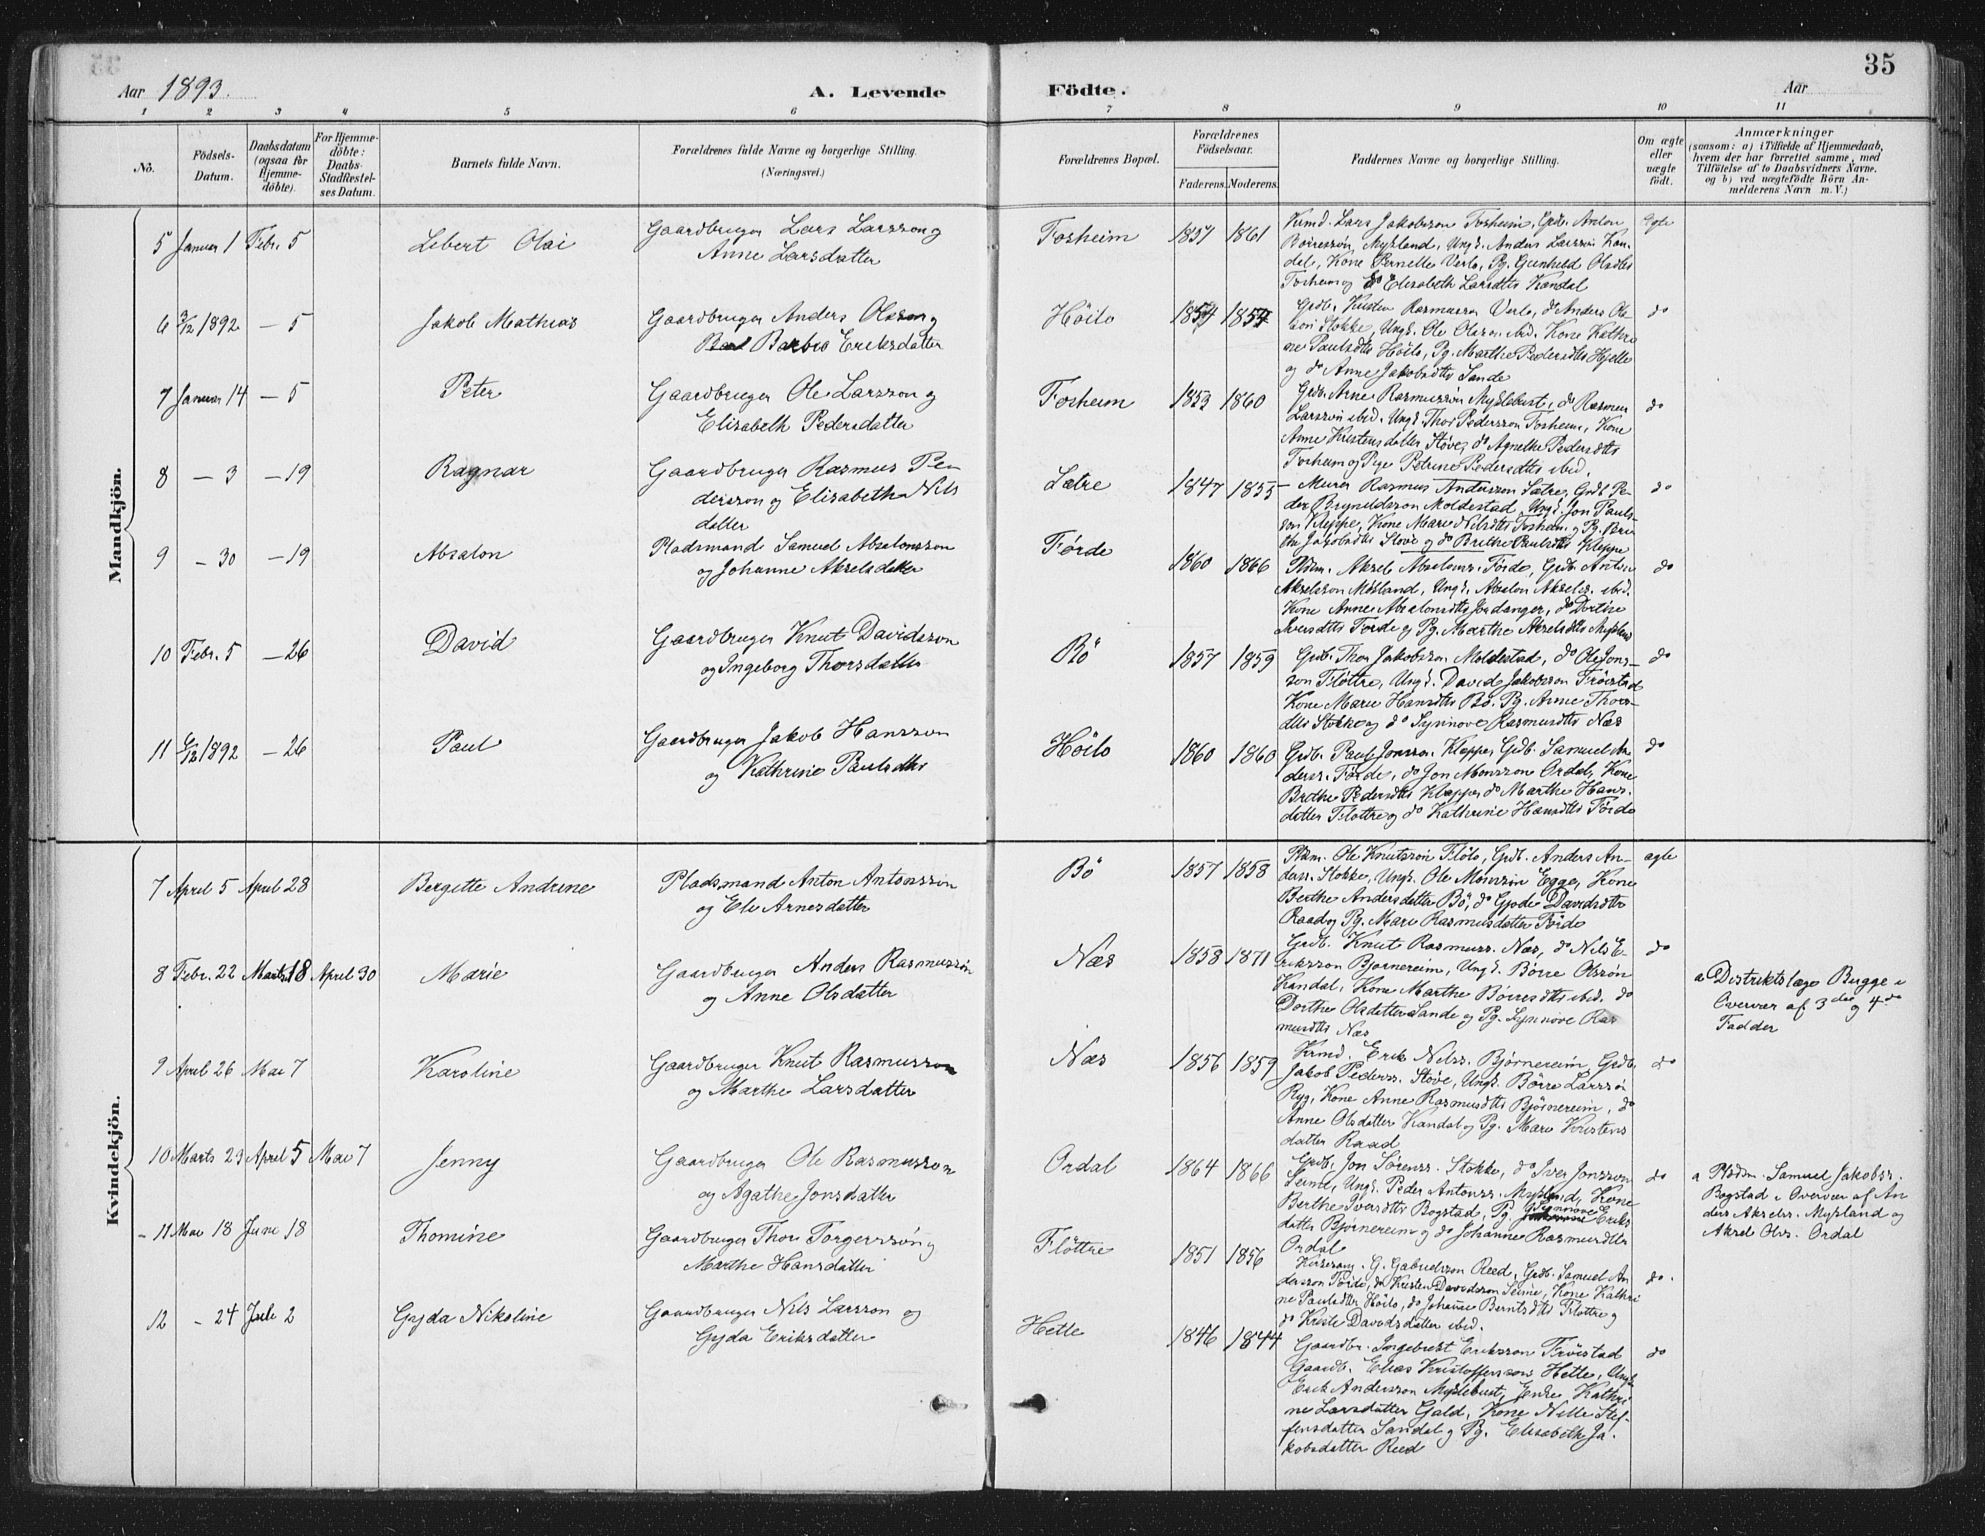 35
Aar 1893.
A. Levende Födte.
Aar
1 2 3 4 5 6 7 8 9 10 11
No.
Födsels-Datum.
Daabsdatum (ogsaa for Hjemme-döbte).
For Hjemme-döbte: Daabs-Stadfæstelses Datum.
Barnets fulde Navn.
Forældrenes fulde Navne og borgerlige Stilling.
(Næringsvei.)
Forældrenes Bopæl.
Forældrenes Födselsaar.
Faderens. Moderens.
Faddernes Navne og borgerlige Stilling.
Om ægte eller uægte födt.
Anmærkninger
(saasom: a) i Tilfælde af Hjemmedaab,
hvem der har forrettet samme, med
Tilföielse af to Daabsvidners Navne.
og b) ved uægtefödte Börn An-
melderens Navn m. V.)
Mandkjön.
5 Januar 1 Febr. 5 Lebert Olai Gaardbruger Lars Larsson og
Anne Larsdatter
Fosheim 1857 1861 Kirmd. Lars Jakobsson Fosheim, Grdb. Anton
Børresson, Mykland, Ungk. Anders Larsson Kan-
dal, Kone Pernelle Verlo, Pg. Gunhild Olsdtr
Fosheim og do Elisabeth Larsdtr Kandal
Ægte
6 3/12 1892 — 5 Jakob Mathias Gaardbruger Anders Olsson og
Barbro Eriksdatter
Höilo 1854 1854 Grdb. Kristen Rasmusson Verlo, do Anders Ole
son Stokke, Ungk. Ole Olsson ibid. Kone Kathri
ne Paulsdtr Höilo, Pg. Marthe Pedersdtr Hjelle
og do Anne Jakobsdtr Sande
do
7 Januar 14 — 5 Peter Gaardbruger Ole Larsson og
Elisabeth Pedersdatter
Fosheim 1853 1860 Grdb. Arne Rasmusson Myklebust, do Rasmus
Larsson ibid. Ungk. Thor Pedersson Fosheim, Kone
Anne Kristensdatter Støve, do Agnethe Pedersdtr
Fosheim og Pige Petrine Pedersdtr ibid.
do
8 — 3 — 19 Ragnar Gaardbruger Rasmus Pe-
dersson og Elisabeth Nils
datter
Sætre 1847 1855 Murer Rasmus Andersson Sætre, Grdb Pe-
der Brynildsson Moldestad, Ungk. Jon Pauls-
son Kleppe, Kone Marie Nilsdtr Fosheim og Pg. Bri
the Jakobsdtr Støve og do Brithe Paulsdtr Kleppe
do
9 — 30 — 19 Absalon Pladsmand Samuel Absalonsson
og Johanne Akselsdatter
Förde 1860 1866 Pldsm. Aksel Absalons. Förde, Grdb. Anton
Akselsson Mykland, Ungk. Absalon Aksels. ibid.
Kone Anne Absalonsdtr Jordanger, do Dortine
Iversdtr Förde og Pg. Marthe Akselsdtr Mykland
do
10 Febr. 5 — 26 David Gaardbruger Knut Davidsson
og Ingeborg Thorsdatter
Bö 1857 1859 Grdb. Thor Jakobsson Moldestad, do Ole Jons-
son Flöttre, Ungk. David Jakobsson Fröistad
Kone Marie Hansdtr Bö. Pg. Anne Thors-
dtr Stokke og do Synnove Rasmusdtr Næs
do
11 6/12 1892 — 26 Paul Gaardbruger Jakob Hansson
og Kathrine Paulsdtr
Höilo 1860 1860 Grdb. Paul Jonsson Kleppe, Grdb. Samuel An
derss. Förde, do Jon Monsson Ordal, Kone
Brithe Pedersdtr Kleppe, do Marthe Hans-
datter Flöttre og do Kathrine Hansdtr Förde
do
Kvindekjön.
7 April 5 April 28 Bergitte Andrine Pladsmand Anton Antonsson
og Eli Arnesdatter
Bö 1857 1858 Pldsm. Ole Knutsson Flölo, Grdb. Anders An-
derss. Stokke, Ungk. Ole Monsson Egge, Kone
Berthe Andersdatter Bö, do Gjode Davidsdtr
Raad og Pg. Mari Rasmusdatter Förde
ægte
8 Febr. 22 Marts 18 April 30 Marie Gaardbruger Anders Rasmusson
og Anne Olsdatter
Næs 1858 1871 Grdb. Knut Rasmuss. Næs, do Nils E-
riksson Bjørnereim, Ungk. Børre Olsson
Kandal, Kone Marthe Børresdtr ibid. do
Dorthe Olsdatter Sande og Pg. Synnove Ras
musdtr Næs
do
a Distriktslæge Bugge i
Overvær af 3die og 4de
Fadder
9 April 26 Mai 7 Karoline Gaardbruger Knut Rasmusson
og Marthe Larsdatter
Næs 1856 1859 Kirmd. Erik Nilss. Bjørnereim, Grdb.
Jakob Pederss. Støve, Ungk. Børre Larsson
Ryg, Kone Anne Rasmusdtr Bjørnereim, do
Anne Olsdatter Kandal og Pg. Mari Kristens
datter Raad
do
10 Marts 23 April 5 Mai 7 Jenny Gaardbruger Ole Rasmusson
og Agathe Jonsdatter
Ordal 1864 1866 Grdb. Jon Sørenss. Stokke, do Iver Jonsson
Seime, Ungk. Peder Antonss. Mykland, Kone
Berthe Iversdtr Bogstad, Pg. Synnove Eriks
datter Bjørnereim og do Johanne Rasmusdtr
Ordal
do
a Pldsm. Samuel Jakobss.
Bogstad i Overvær af An
ders Akselss. Mykland og
Aksel Olss. Ordal
11 Mai 18 Juni 18 Thomine Gaardbruger Thor Torgersson og
Marthe Hansdatter
Flöttre 1851 1856 Kirkesang. G. Gabrielsson Reed, Grdb. Samuel An
dersson Förde, do Kristen Davidsson Seime, Kone Kathri
ne Paulsdtr Höilo, do Johanne Berntsdtr Flöttre og
do Kristi Davidsdatter ibid.
do.
12 — 24 Juli 2 Gyda Nikoline Gaardbruger Nils Larsson og
Gyda Eriksdatter
Hetle 1846 1844 Gaardbr. Ingebrigt Eriksson Fröistad
Gaardb. Elias Kristoffersson Hetle, Ungk
Erik Andersson Myklebust, Enke Kathri
ne Larsdatter Gald, Kone Nille Stef-
fensdatter Sandal og Pg. Elisabeth Ja-
kobsdatter Reed
do